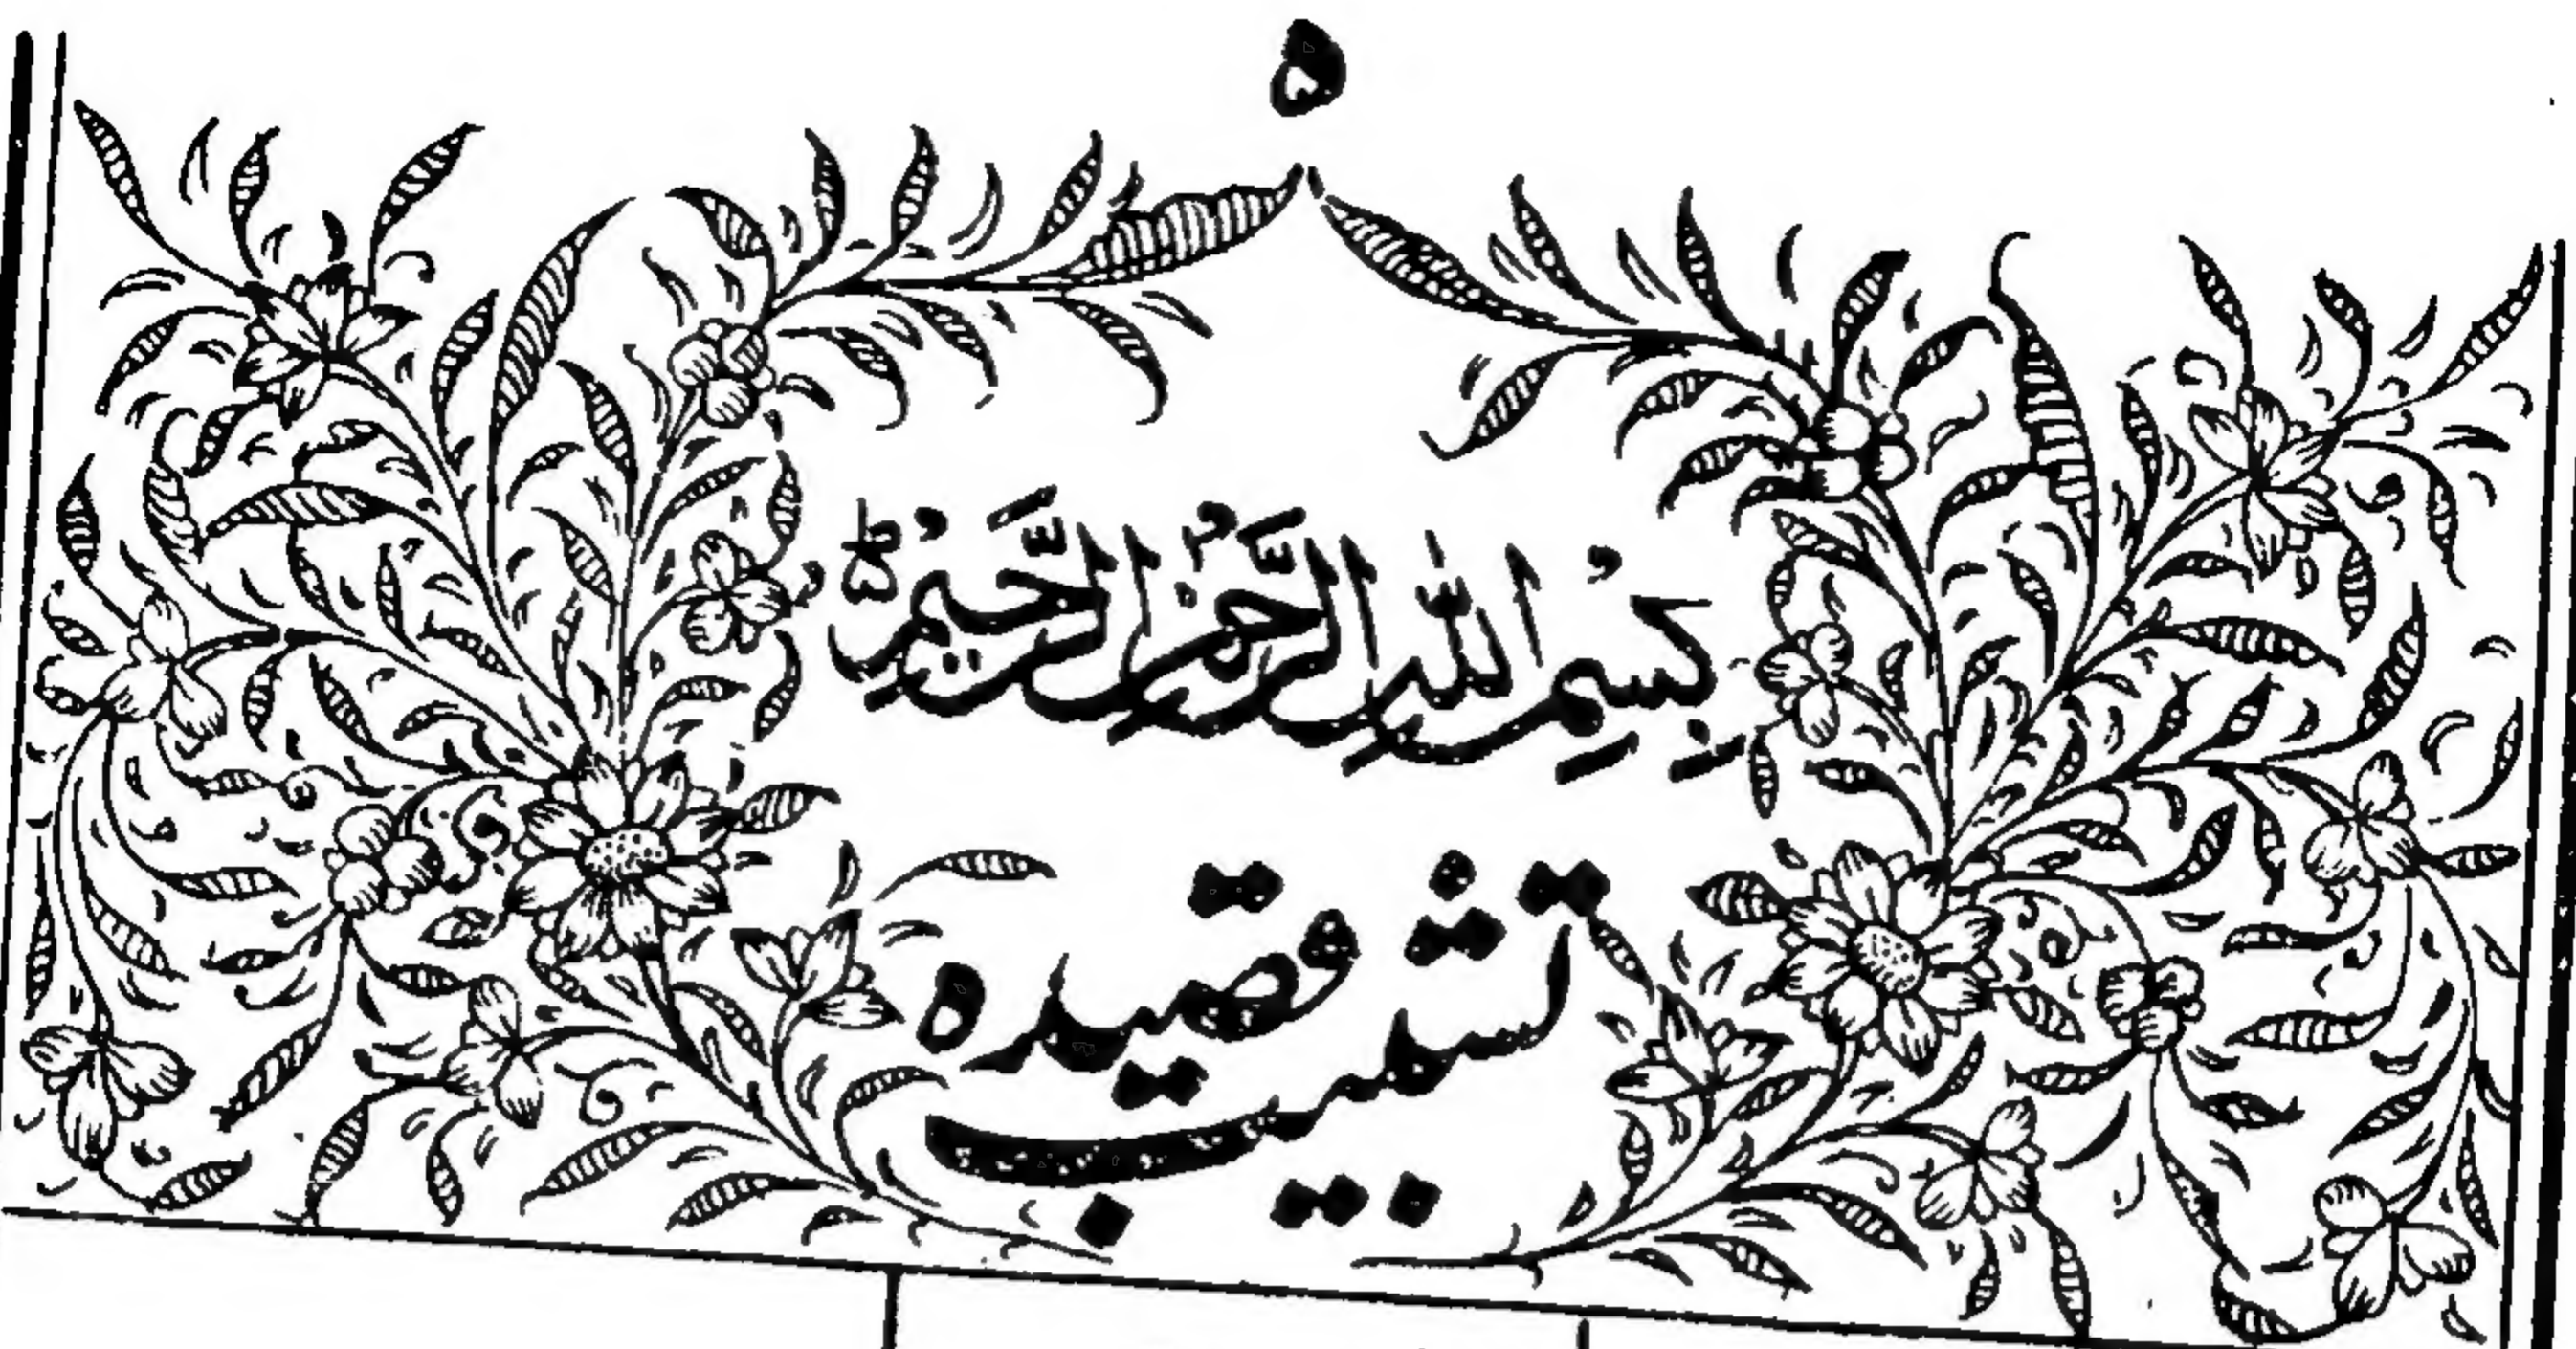 ۵
بِسْمِ اللّٰهِ الرَّحْمٰنِ الرَّحِيْمِ ؕ
تشبیب قصیدہ